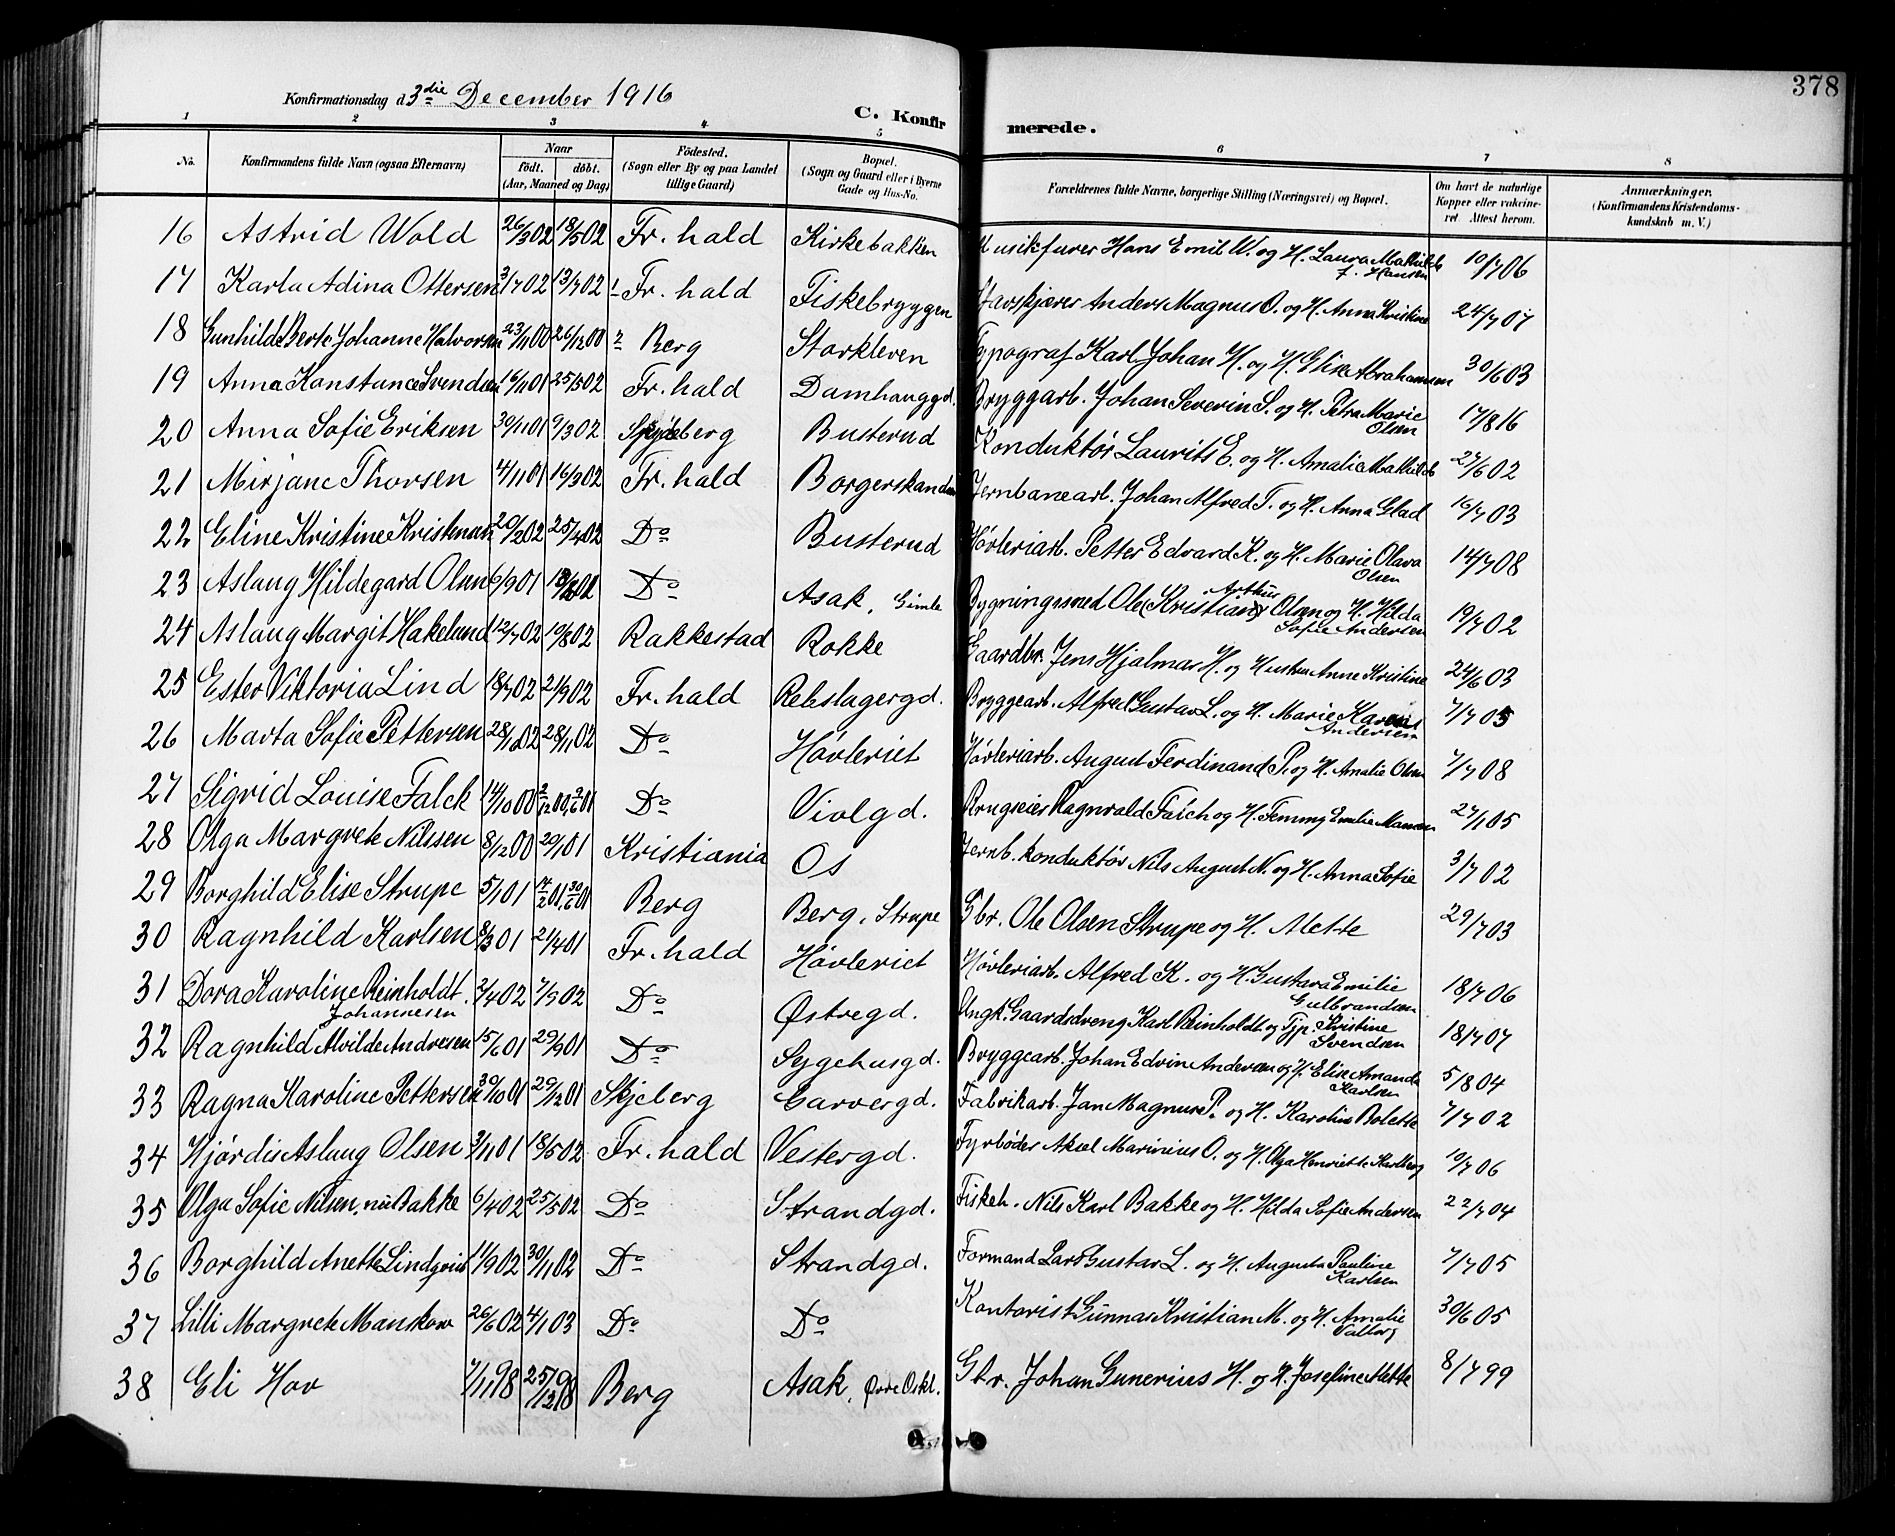 378
Konfirmationsdag d. 3die December 1916
C. Konfirmerede.
1 2 3 4 5 6 7 8
No. Konfirmandens fulde Navn (ogsaa Efternavn) Naar födt. döbt. (Aar, Maaned og Dag) Födested. (Sogn eller By og paa Landet tillige Gaard) Bopæl. (Sogn og Gaard eller i Byerne Gade og Hus-No. Forældrenes fulde Navne, borgerlige Stilling (Næringsvei) og Bopæl. Om havt de naturlige Kopper eller vakcineret. Attest herom. Anmærkninger. (Konfirmandens Kristendomskundskab m. V.)
16 Astrid Wold 26/3 02 18/5 02 Fr. hald Kirkebakken Musikfurer Hans Emil W. og H. Laura Mathilde f. Hansen 10/7 06
17 Karla Adina Ottersen 3/1 02 13/7 02 Fr. hald Fiskebryggen Anders Magnus O. og H. Anna Kristine 24/7 07
18 Gunhilda Berte Johanne Halvorsen 23/11 00 26/12 00 Berg Storkleven Typograf Karl Johan H. og H. Elise Abrahamsen 30/6 03
19 Anna Konstance Svendsen 16/11 01 25/3 02 Fr. hald Damhauggd. Bryggarb. Johan Severin S. og H. Petra Marie Olsen 17/8 16
20 Anna Sofie Eriksen 30/11 01 9/3 02 Spydeberg Busterud Konduktör Laurits E. og H. Amalie Mathilde 27/6 02
21 Mirjane Thorsen 4/11 01 16/3 02 Fr. hald Borgerskansen Jernbanearb. Johan Alfred T. og H. Anna Glad 16/7 03
22 Eline Kristine Kristensen 20/2 02 25/4 02 Do Busterud Hövleriarb. Petter Edvard K. og H. Marie Olava Olsen 14/7 08
23 Aslaug Hildegard Olsen 6/9 01 02 Do Asak, Gimle Bygningssmed Ole (Kristian) Arthur Olsen og H. Hilda Sofie Andersen 19/7 02
24 Aslaug Margit Hakelund 12/7 02 19/8 02 Rakkestad Rokke Gaardbr. Jens Hjalmar H. og Hustru Anne Kristine 24/6 03
25 Ester Viktoria Lind 18/7 02 21/9 02 Fr. hald Rebslagergd. Bryggearb. Alfred Gustav L. og H. Marie Andersen 7/7 05
26 Marta Sofie Pettersen 28/10 02 28/11 02 Do Hövleriet Hövleriarb. August Ferdinand P. og H. Amalie Olsen 7/7 08
27 Sigrid Louise Falck 14/10 00 2/12 00, 2/6 01 Do Violgd. Ragnvald Falch og H. Femmy Emilie 27/1 05
28 Olga Margrete Nilssen 8/12 00 20/1 01 Kristiania Os Jernb. konduktör Nils August N. og H. Anna Sofie 3/7 02
29 Borghild Elise Strupe 5/1 01 17/2 01, 30/6 01 Berg Berg, Strupe Gbr. Ole Olsen Strupe og H. Mette 29/7 03
30 Ragnhild Karlsen 8/3 01 21/4 01 Fr. hald Hövleriet Hövleriarb. Alfred K. og H. Gustava Emilie Gulbrandsen 18/7 06
31 Dora Karoline Reinholdt Johannesen 2/4 02 7/9 02 Do Østregd. Ungk. Gaardsdreng Karl Reinholdt og Tjp. Kristine Svendsen 18/7 07
32 Ragnhild Alvilde Andresen 15/6 01 29/9 01 Do Sygehusgd. Bryggearb. Johan Edvin Andersen og H. Elise Amanda Karlsen 5/8 04
33 Ragna Karoline Pettersen 30/10 01 29/12 01 Skjeberg Garvergd. Fabrikarb. Jan Magnus P. og H. Karolius Bolette 7/7 02
34 Hjördis Aslaug Olsen 3/11 01 18/5 02 Fr. hald Vestergd. Fyrböder Aksel Marinius O. og H. Olga Henriette Karlberg 10/7 06
35 Olga Sofie Nilsen, nu Bakke 6/4 02 25/5 02 Do Strandgd. Fiskeh. Nils Karl Bakke og H. Hilda Sofie Andersen 22/7 04
36 Borghild Anette Lindqvist 11/9 02 30/11 02 Do Strandgd. Formand Lars Gustav L. og H. Augusta Pauline Karlsen 7/7 05
37 Lilli Margrete Manskow 26/6 02 4/1 03 Do Do Kontorist Gunnar Kristian M. og H. Amalie Valborg 30/6 05
38 Eli Hov 7/11 98 25/12 98 Berg Asak, Øvre Gbr. Johan Gunerius H. og H. Josefine Mette 8/7 99